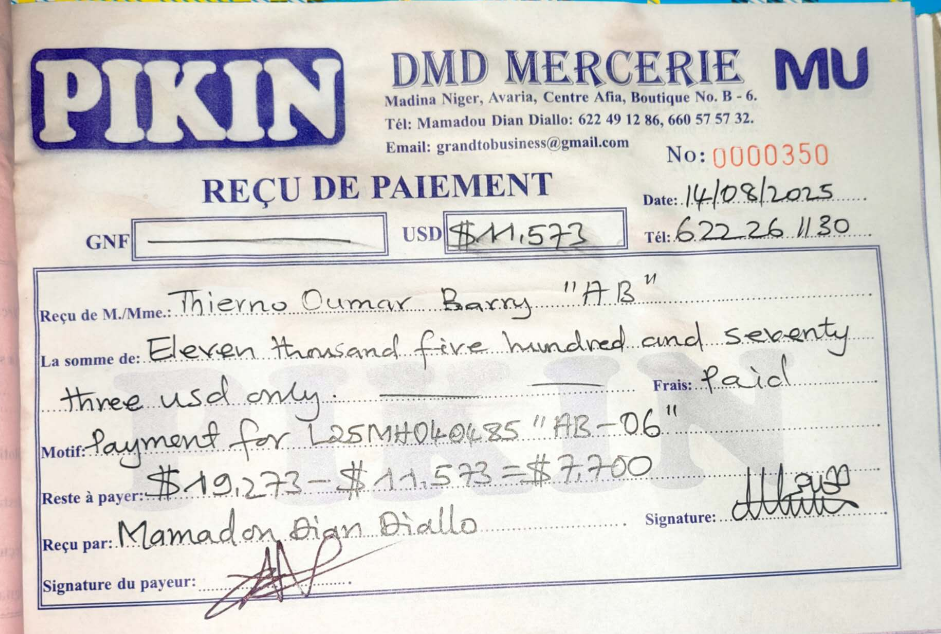 PIKIN
DMD MERCERIE MU
Madina Niger, Avaria, Centre Afia, Boutique No. B - 6.
Tél: Mamadou Dian Diallo: 622 49 12 86, 660 57 57 32.
Email: grandtobusiness@gmail.com
No: 0000350
REÇU DE PAIEMENT
Date: 14/08/2025
GNF USD $11,573 Tél: 622 26 11 30
Reçu de M./Mme.: Thierno Oumar Barry "AB"
La somme de: Eleven thousand five hundred and seventy
three usd only. Frais: Paid
Motif: Payment for L25MH040485 "AB-06"
Reste à payer: $19,273 - $11,573 = $7,700
Reçu par: Mamadou Dian Diallo Signature:
Signature du payeur:
PIKIN